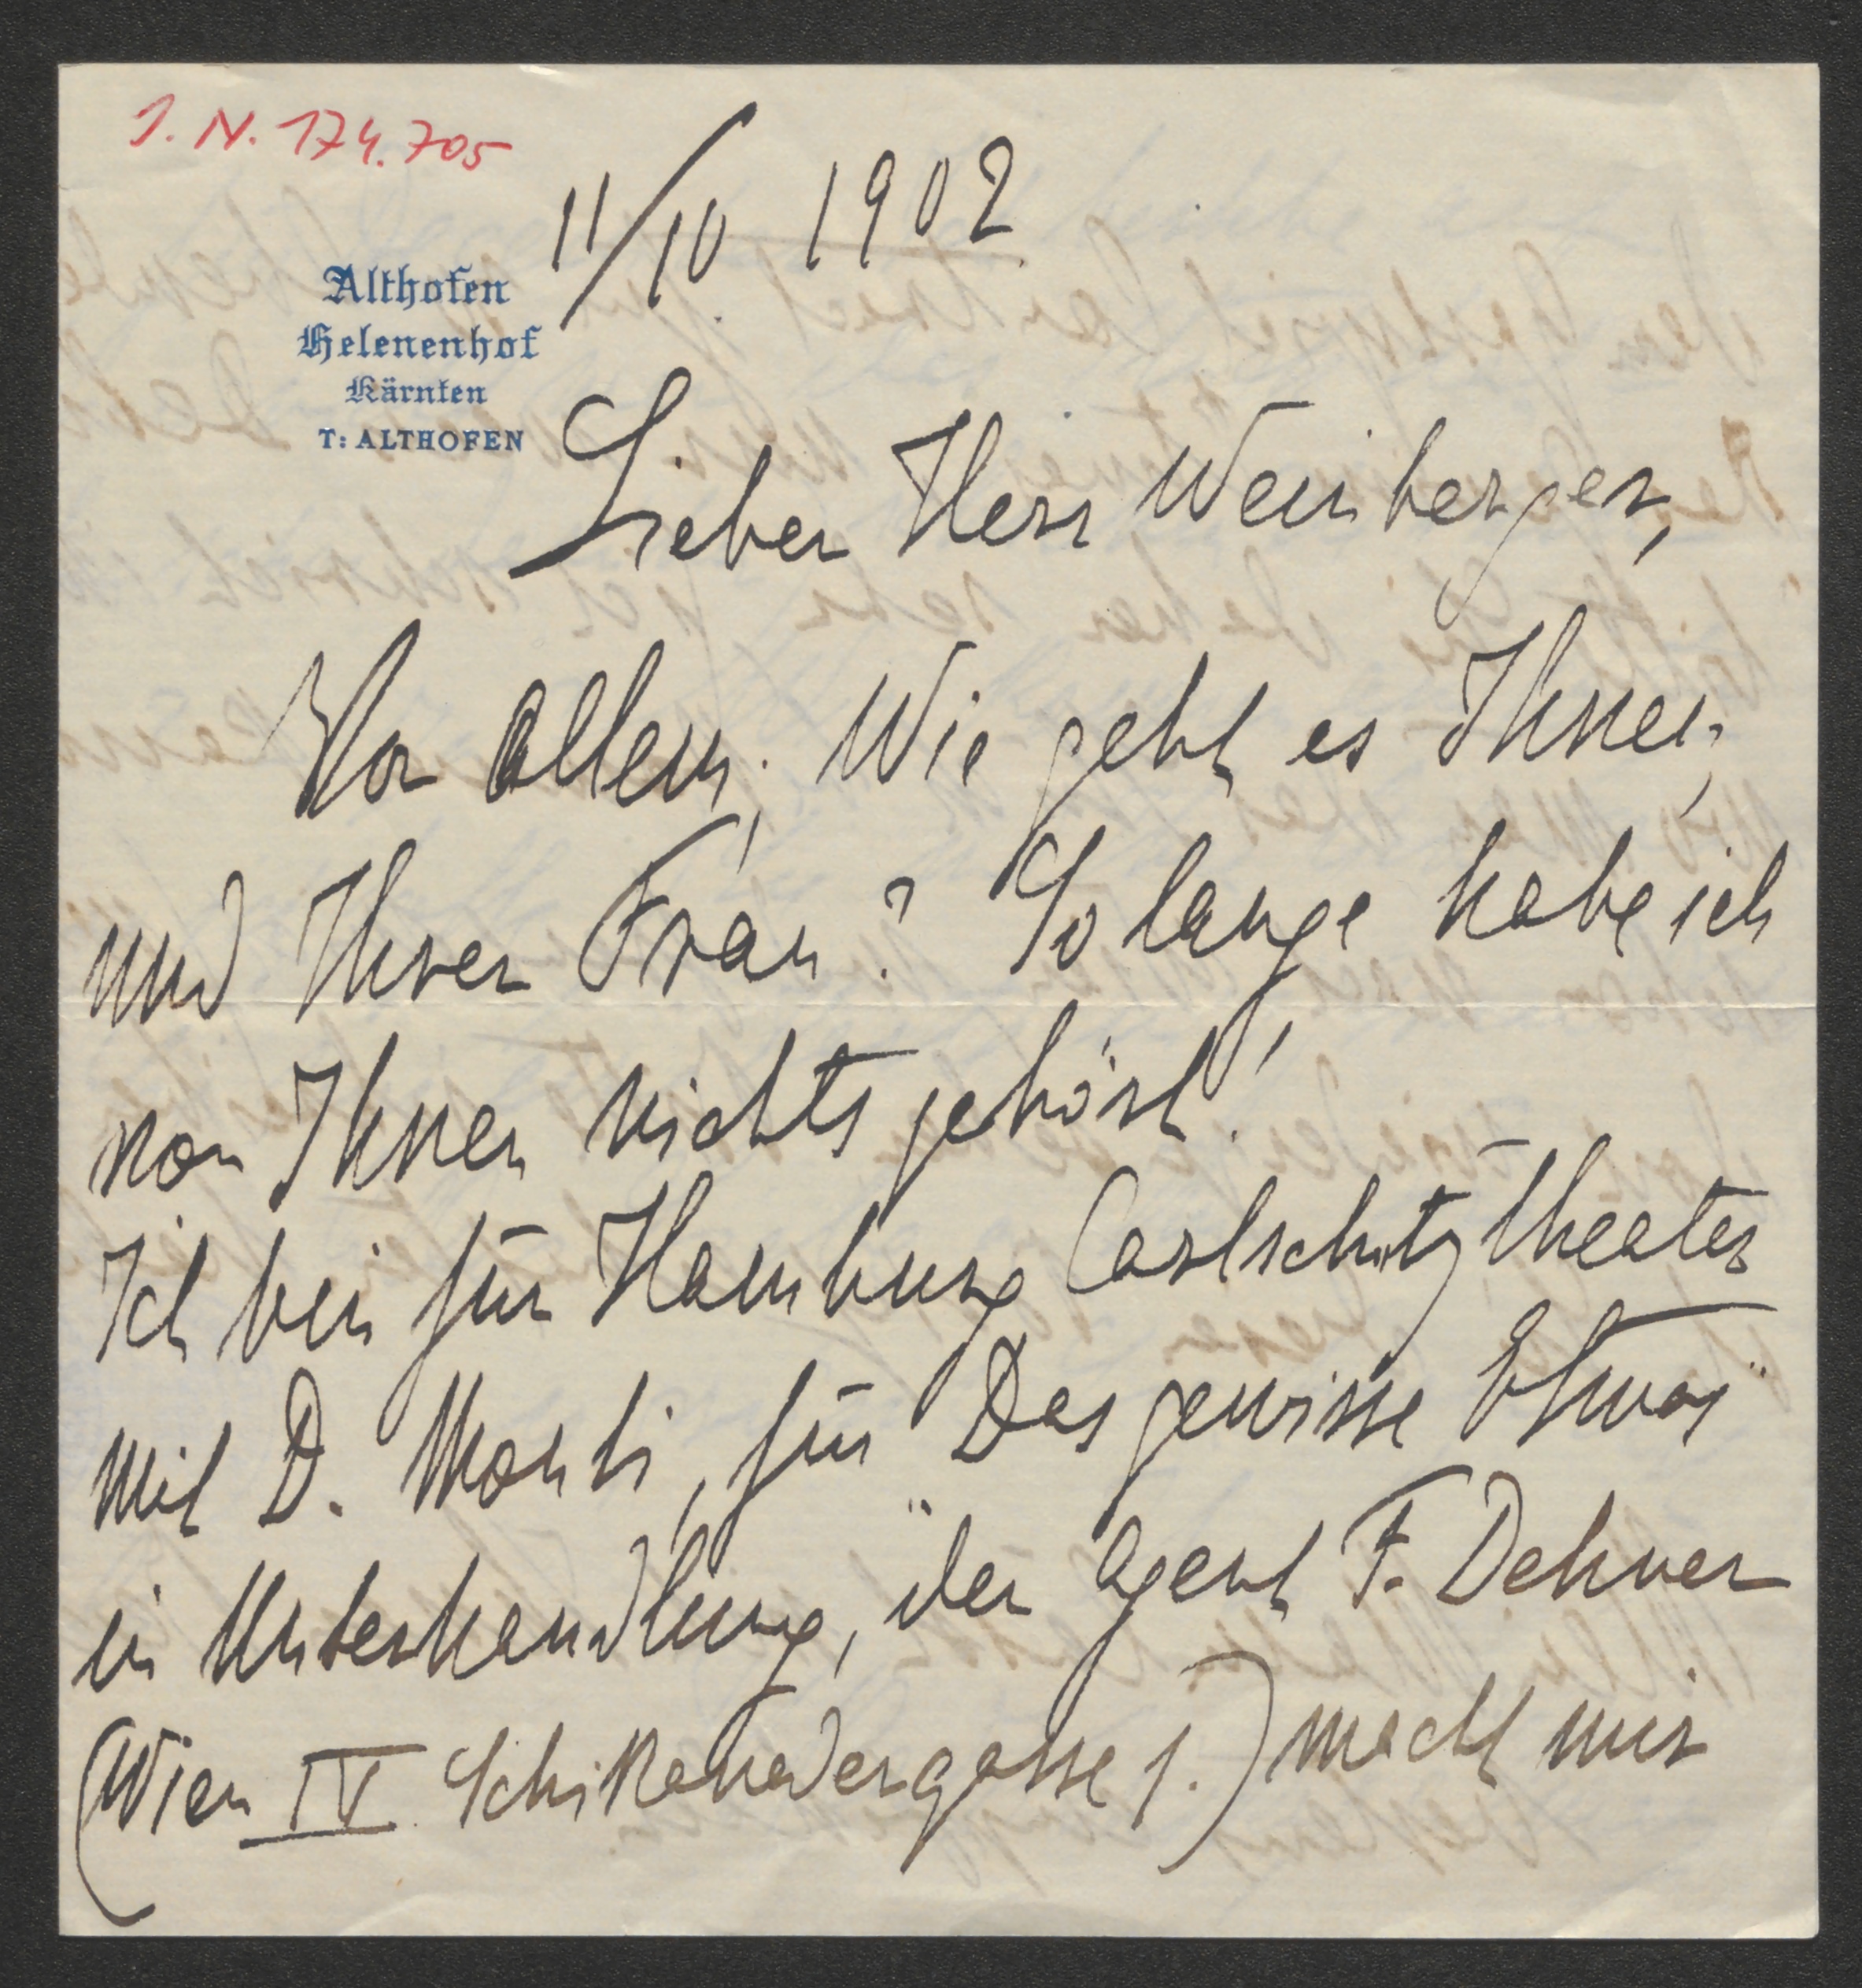 I. N. 174.705
11/10 1902
Althofen
Helenenhof
Kärnten
T: ALTHOFEN
Lieber Herr Weinberger,
Vor allem: Wie geht es Ihnen,
und Ihrer Frau? So lange habe ich
von Ihnen nichts gehört!
Ich bin für Hamburg Carlschutztheater
mit D. Monti, für "Das gewisse Etwas"
in Unterhandlung, der Agent F. Dehner
(Wien IV Schikanedergasse 1.) macht mir